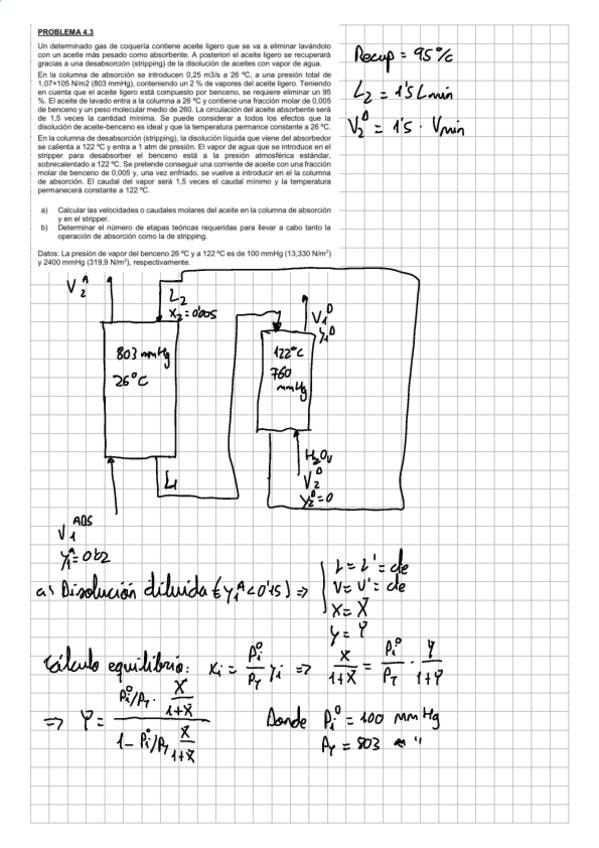 PROBLEMA 4.3
Un determinado gas de coquería contiene aceite ligero que se va a eliminar lavándolo
con un aceite más pesado como absorbente. A posteriori el aceite ligero se recuperará
gracias a una desabsorción (stripping) de la disolución de aceites con vapor de agua.
En la columna de absorción se introducen 0,25 m3/s a 26 ºC, a una presión total de
1,07*105 N/m2 (803 mmHg), conteniendo un 2 % de vapores del aceite ligero. Teniendo
en cuenta que el aceite ligero está compuesto por benceno, se requiere eliminar un 95
%. El aceite de lavado entra a la columna a 26 ºC y contiene una fracción molar de 0,005
de benceno y un peso molecular medio de 260. La circulación del aceite absorbente será
de 1,5 veces la cantidad mínima. Se puede considerar a todos los efectos que la
disolución de aceite-benceno es ideal y que la temperatura permance constante a 26 ºC.
En la columna de desabsorción (stripping), la disolución líquida que viene del absorbedor
se calienta a 122 ºC y entra a 1 atm de presión. El vapor de agua que se introduce en el
stripper para desabsorber el benceno está a la presión atmosférica estándar,
sobrecalentado a 122 ºC. Se pretende conseguir una corriente de aceite con una fracción
molar de benceno de 0,005 y, una vez enfriado, se vuelve a introducir en el la columna
de absorción. El caudal del vapor será 1,5 veces el caudal mínimo y la temperatura
permanecerá constante a 122 ºC.
a) Calcular las velocidades o caudales molares del aceite en la columna de absorción
y en el stripper.
b) Determinar el número de etapas teóricas requeridas para llevar a cabo tanto la
operación de absorción como la de stripping.
Datos: La presión de vapor del benceno 26 ºC y a 122 ºC es de 100 mmHg (13,330 N/m²)
y 2400 mmHg (319,9 N/m²), respectivamente.
Recup = 95%
L₂ = 1'5 Lmin
V₂ᴰ = 1'5 · Vmin
V₂ᴬ
L₂
X₂ = 0'005
V₁ᴰ
Y₁ᴰ
803 mmHg
26ºC
122ºC
760
mmHg
L₁
H₂Ov
V₂ᴰ
Y₂ᴰ=0
V₁ ABS
Y₁ᴬ= 0'02
a) Disolución diluida (Y₁ᴬ<0'15) ⇒
L = L' = cte
V = V' = cte
x = X
y = Y
Cálculo equilibrio: xᵢ = Pᵢ⁰/P_T yᵢ ⇒ X/(1+X) = Pᵢ⁰/P_T · Y/(1+Y)
⇒ Y = (Pᵢ⁰/P_T · X/(1+X)) / (1 - Pᵢ⁰/P_T X/(1+X))
Donde Pᵢ⁰ = 100 mmHg
P_T = 803 " "